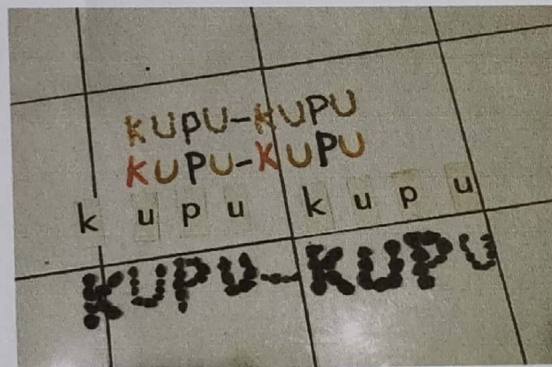 KUPU-KUPU
KUPU-KUPU
k u p u k u p u
KUPU-KUPU